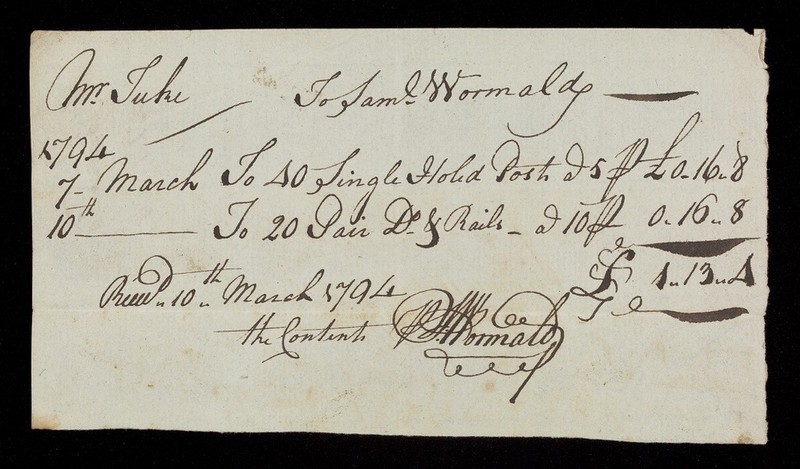 Mr. Tuke To Saml. Wormald
1794
7 March To 40 Single Holed Post @ 5 p £ 0 " 16 " 8
10th To 20 Pair Do. & Rails - @ 10 p 0 " 16 " 8
£ 1 " 13 " 4
Recd. 10th March 1794
the Contents Wormald